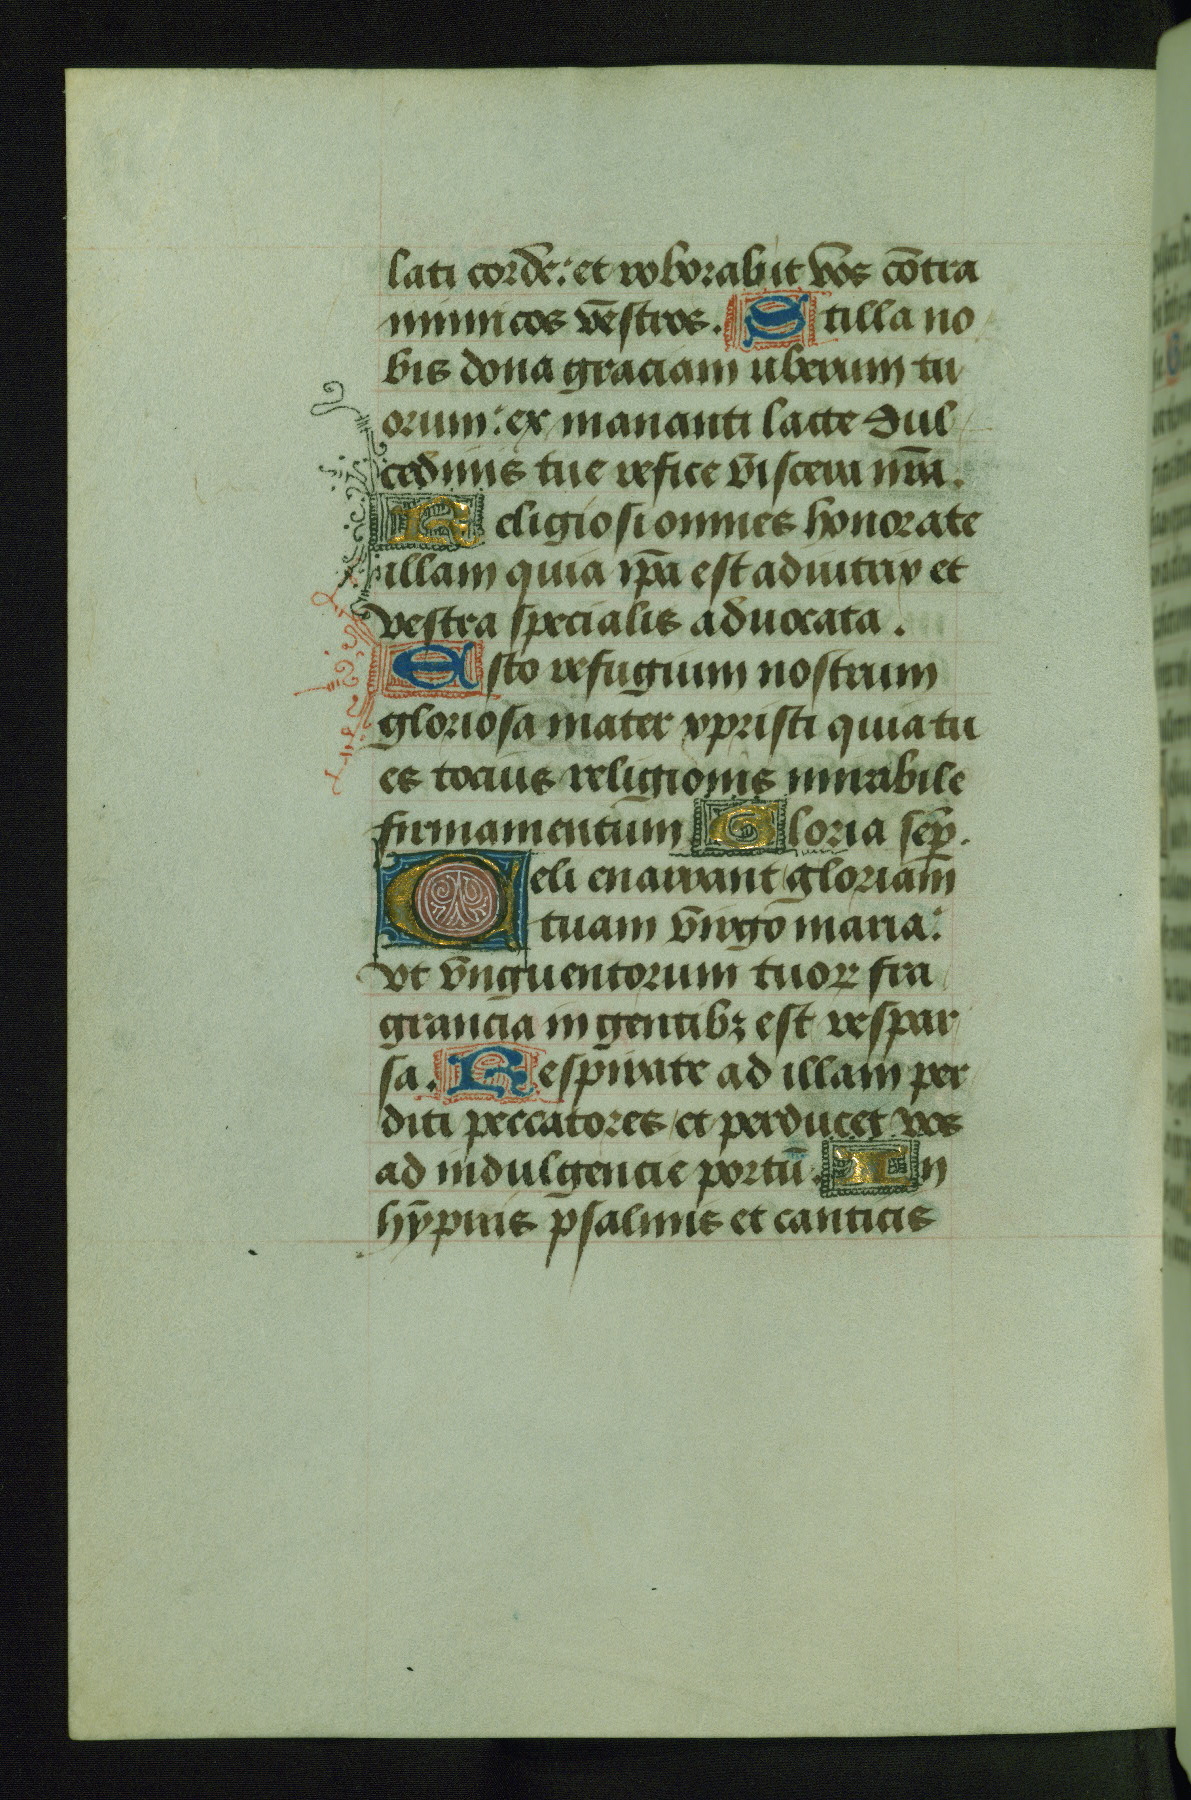 lati corde: et roborabit vos cōtra
inimicos vestros. Stilla no
bis dona graciam uberum tu
orum: ex mananti lacte dul
cedinis tue refice viscera nr̄a.
Religiosi omnes honorate
illam quia ip̄a est adiutrix et
vestra specialis aduocata.
Esto refugium nostrum
gloriosa mater xpristi quia tu
es tocius religionis mirabile
firmamentum Gloria sēp.
Celi enarrant gloriam
tuam virgo maria:
vt vnguentorum tuoꝝ fra
grancia in gentibꝫ est respar
sa. Respirate ad illam per
diti peccatores et perducet vos
ad indulgencie portū. In
hympnis psalmis et canticis